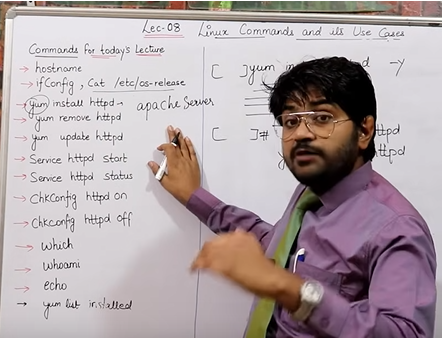 Lec-08 Linux Commands and its Use Cases
Commands for today's Lecture
→ hostname
→ ifConfig, Cat /etc/os-release
→ yum install httpd → apache Server
→ yum remove httpd
→ yum update httpd
→ Service httpd start
→ Service httpd status
→ ChkConfig httpd on
→ Chkconfig httpd off
→ which
→ whoami
→ echo
→ yum list installed
[ ]yum -y
[ ]#
httpd